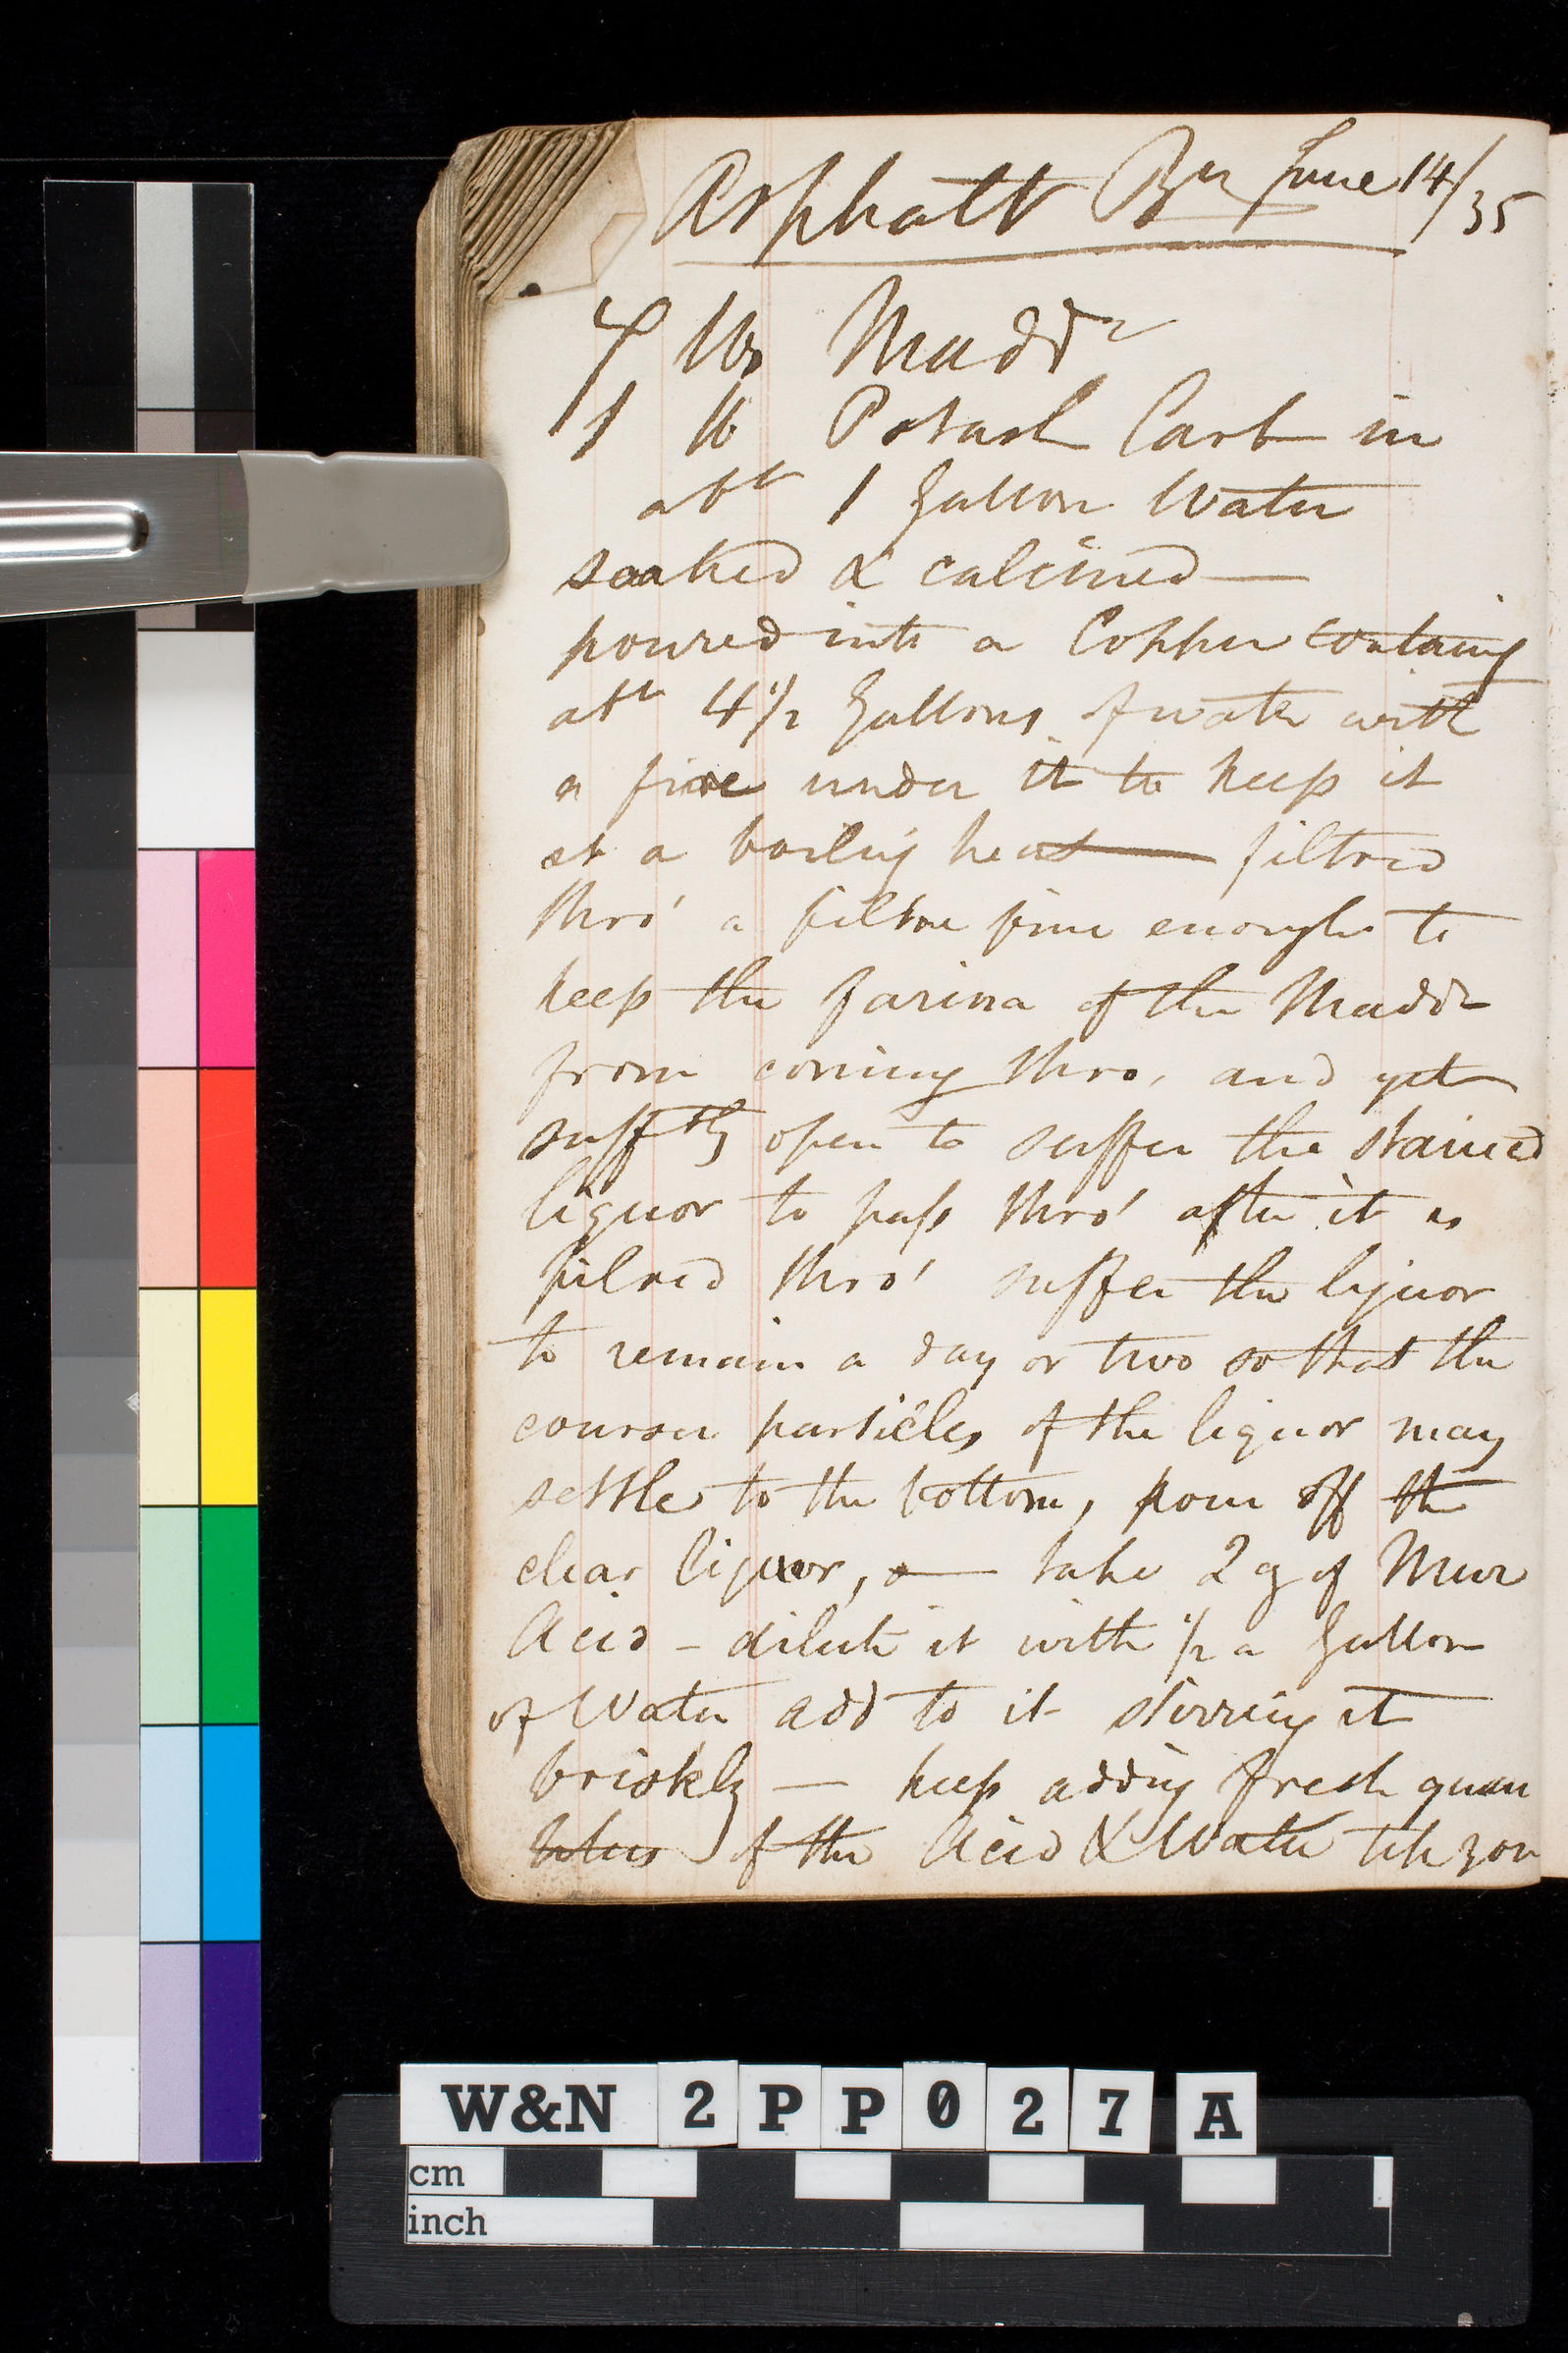 Asphalt Bn June 14/35
7 lbs Maddr
1 lb Potash Carb in
abt 1 Gallon Water
soaked & calcined —
poured into a Copper containg
abt 4 1/2 Gallons of water with
a fire under it to keep it
at a boiling heat — filtred
thro' a filtre fine enough to
keep the farina of the Maddr
from coming thro, and yet
sufftly open to suffer the stained
liquor to pass thro' after it is
filred thro' suffer the liquor
to remain a day or two so that the
courser particles of the liquor may
settle to the bottom, pour off the
clear liquor, — take 2 g of Mur
Acid - dilute it with 1/2 a Gallon
of Water add to it stirring it
briskly — keep adding fresh quan
tities of the Acid & Water till you
W&N 2PP027 A
cm
inch